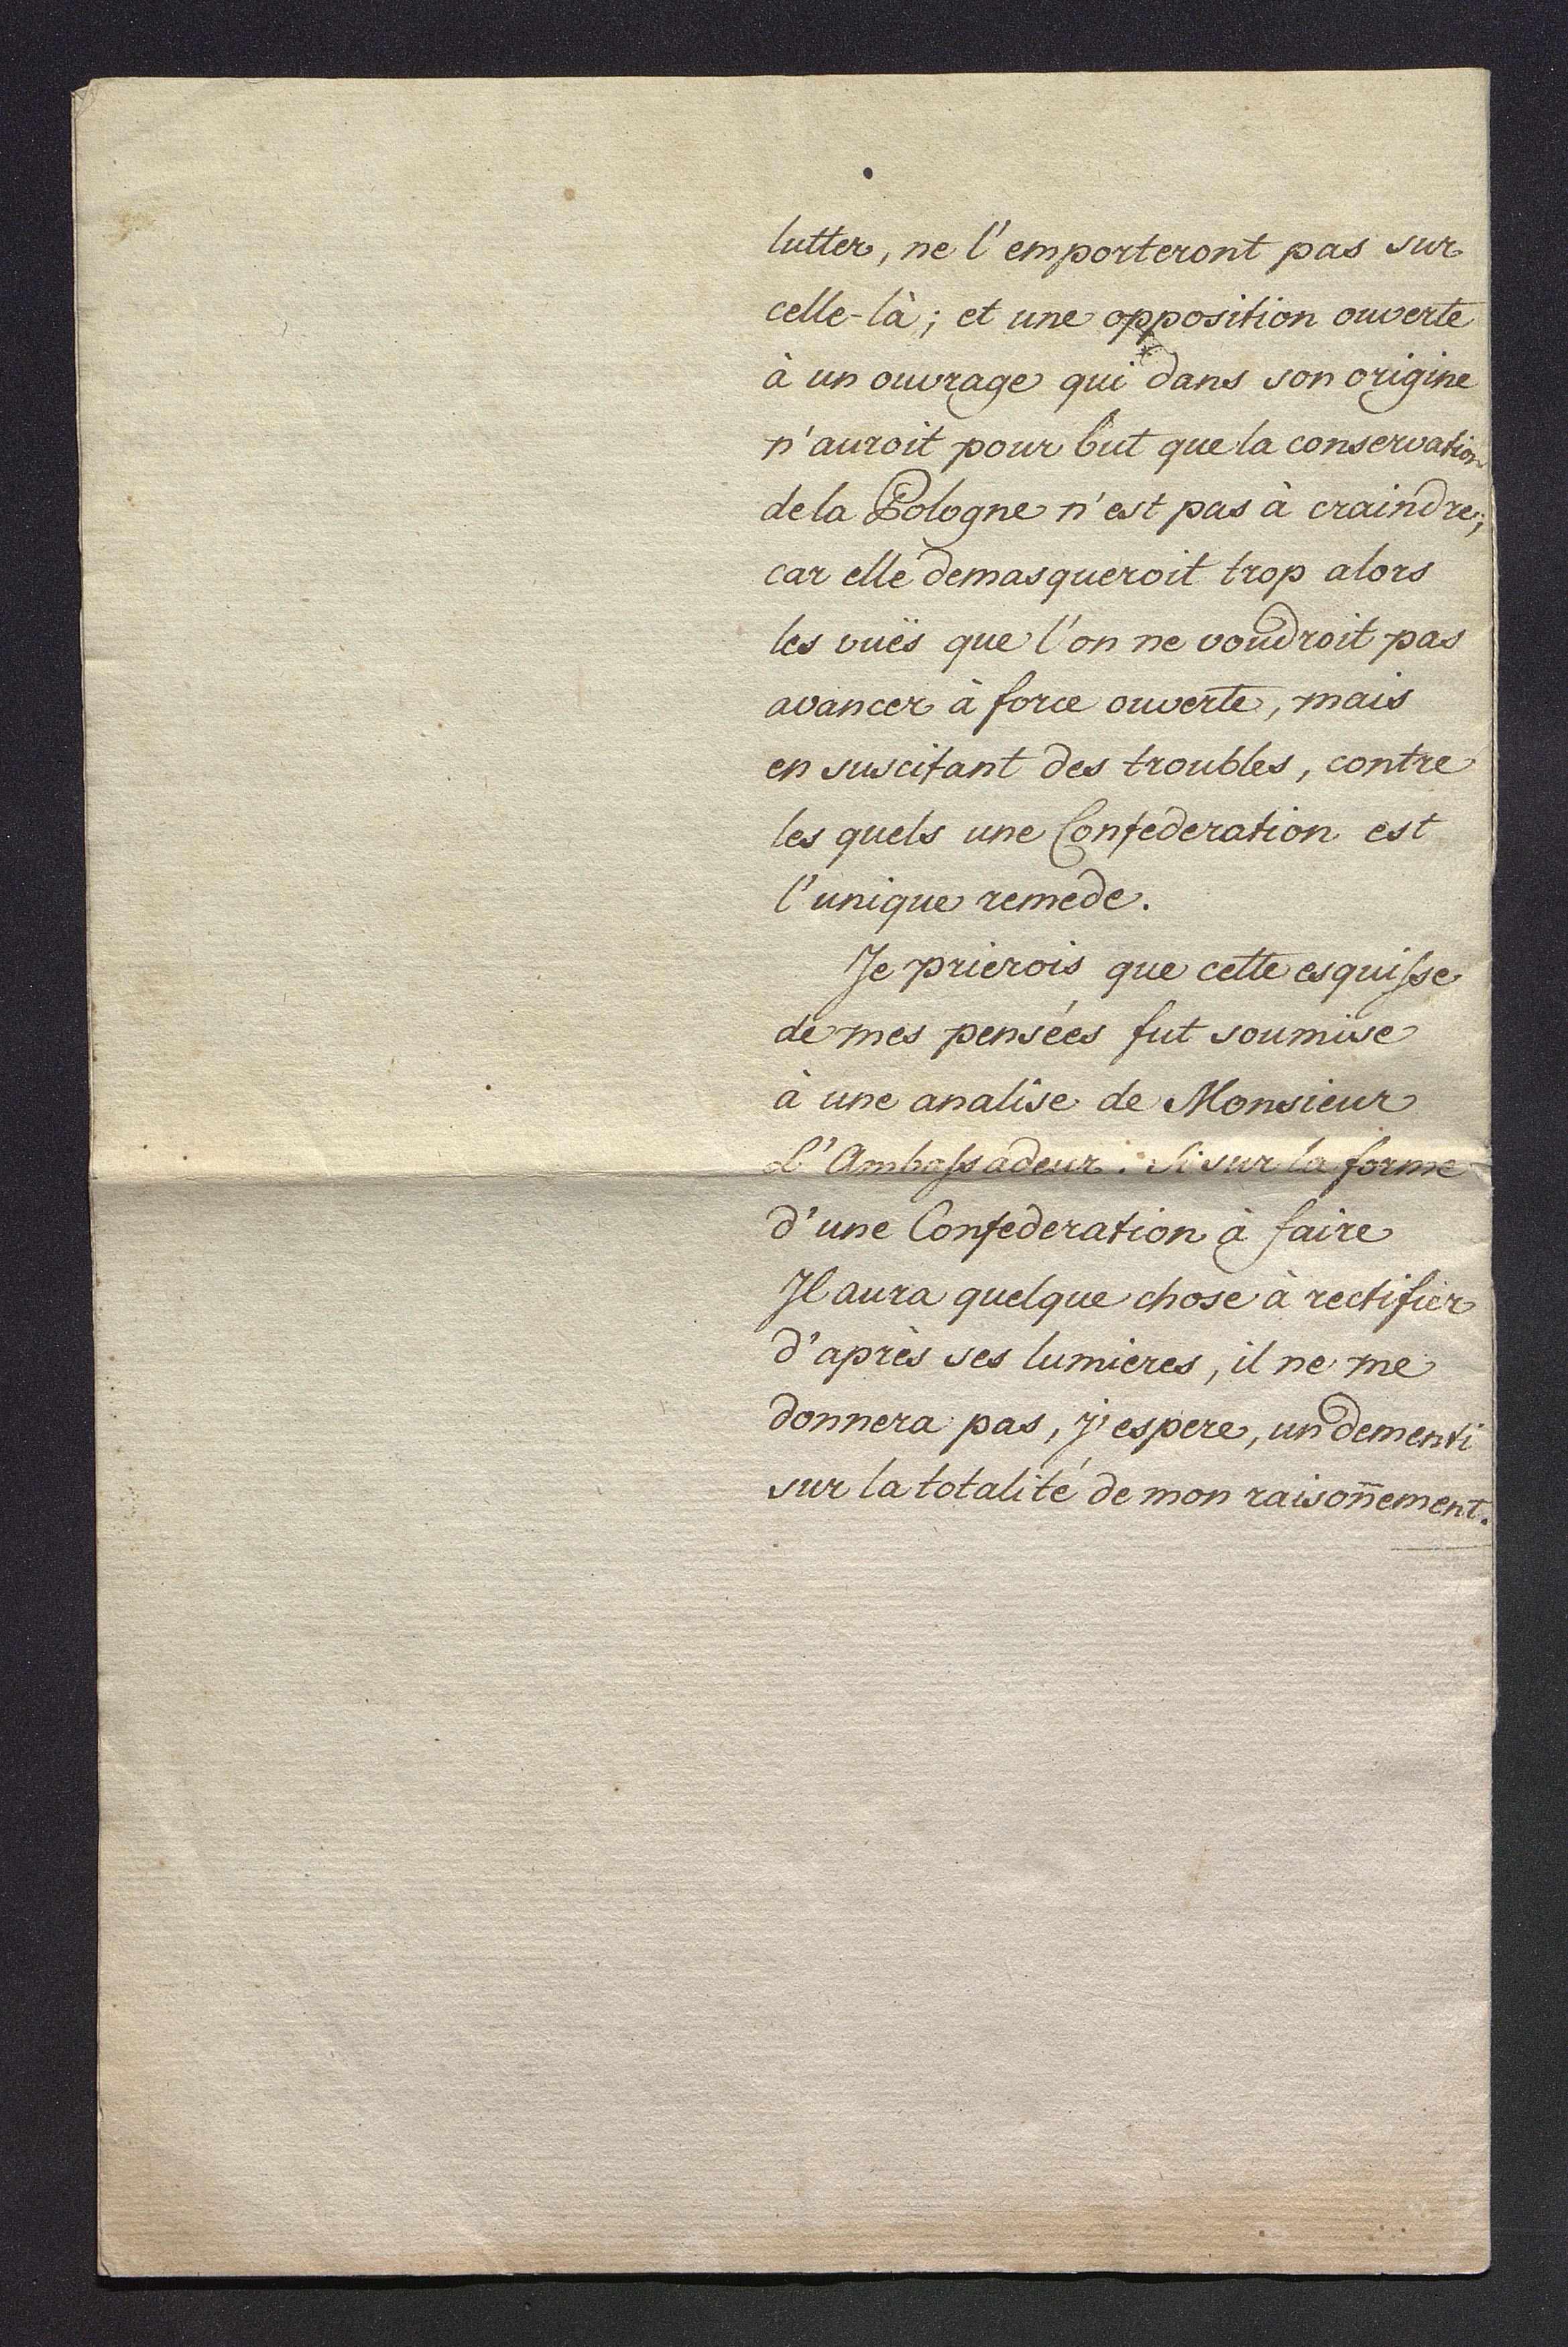 lutter, ne l'emporteront pas sur
celle-là; et une opposition ouverte
à un ouvrage qui dans son origine
n'auroit pour but que la conservation
de la Pologne n'est pas à craindre;
car elle demasqueroit trop alors
les vuës que l'on ne voudroit pas
avancer à force ouverte, mais
en suscitant des troubles, contre
les quels une Confederation est
l'unique remede.
Je prierois que cette esquisse
de mes pensées fut soumise
à une analise de Monsieur
L'Ambassadeur. Si sur la forme
d'une Confederation à faire
Il aura quelque chose à rectifier
d'après ses lumieres, il ne me
donnera pas, j'espere, un dementi
sur la totalité de mon raisoñement.